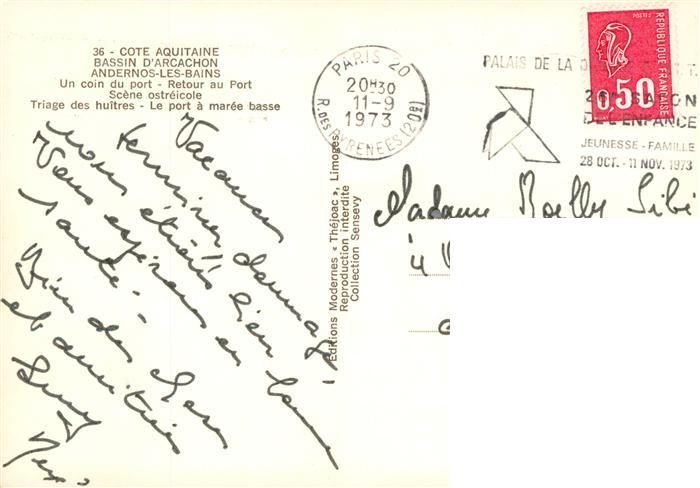 36 - COTE AQUITAINE
BASSIN D'ARCACHON
ANDERNOS-LES-BAINS
Un coin du port - Retour au Port
Scène ostréicole
Triage des huîtres - Le port à marée basse
Vacances
terminées dommage
nous étions bien
Vous espérons en bonne
santé -
Bien des choses
et amitiés
Editions Modernes « Théjoac », Limoges
Reproduction interdite
Collection Sensevy
PARIS 20
20H30
11-9
1973
R. DES PYRENEES (20E)
PALAIS DE LA
SALON
DE L'ENFANCE
JEUNESSE - FAMILLE
28 OCT. - 11 NOV. 1973
POSTES
REPUBLIQUE FRANÇAISE
0,50
Madame
à